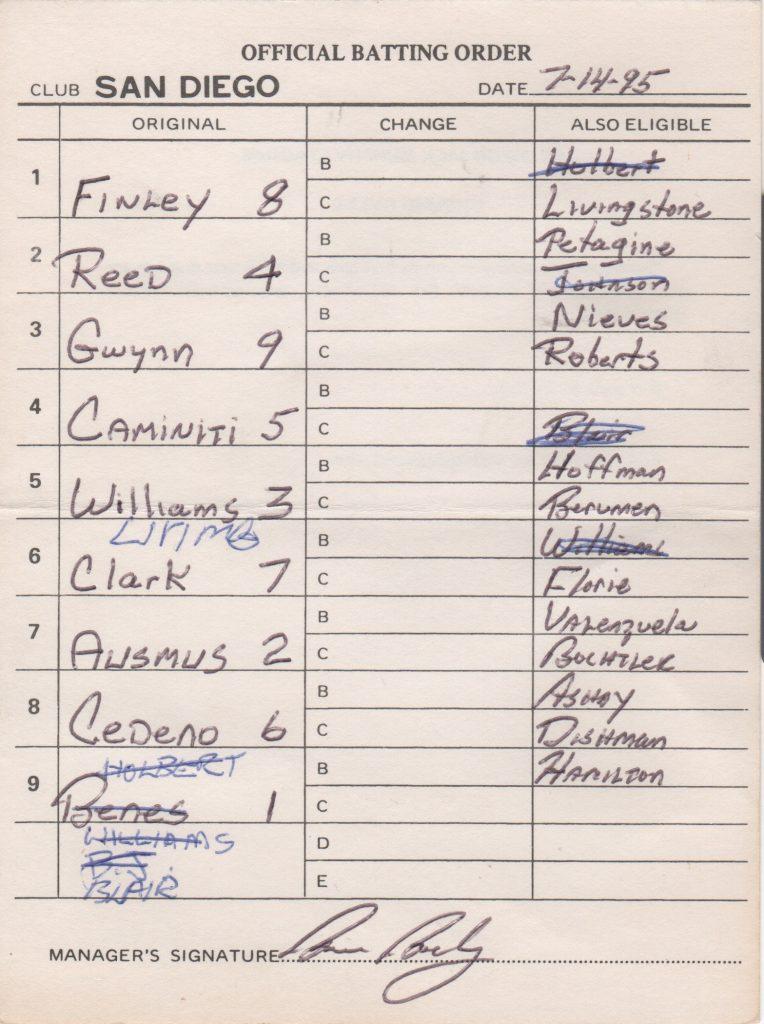 OFFICIAL BATTING ORDER
CLUB SAN DIEGO DATE 7-14-95
ORIGINAL CHANGE ALSO ELIGIBLE
1 Finley 8 B Holbert
C Livingstone
2 Reed 4 B Petagine
C Johnson
3 Gwynn 9 B Nieves
C Roberts
4 Caminiti 5 B
C Blair
5 Williams 3 B Hoffman
C Berumen
6 B Williams
Clark 7 C Florie
7 Ausmus 2 B Valenzuela
C Bochtler
8 Cedeno 6 B Ashby
C Dishman
HOLBERT B Hamilton
9 Benes 1 C
WILLIAMS D
B.J.
BLAIR E
MANAGER'S SIGNATURE